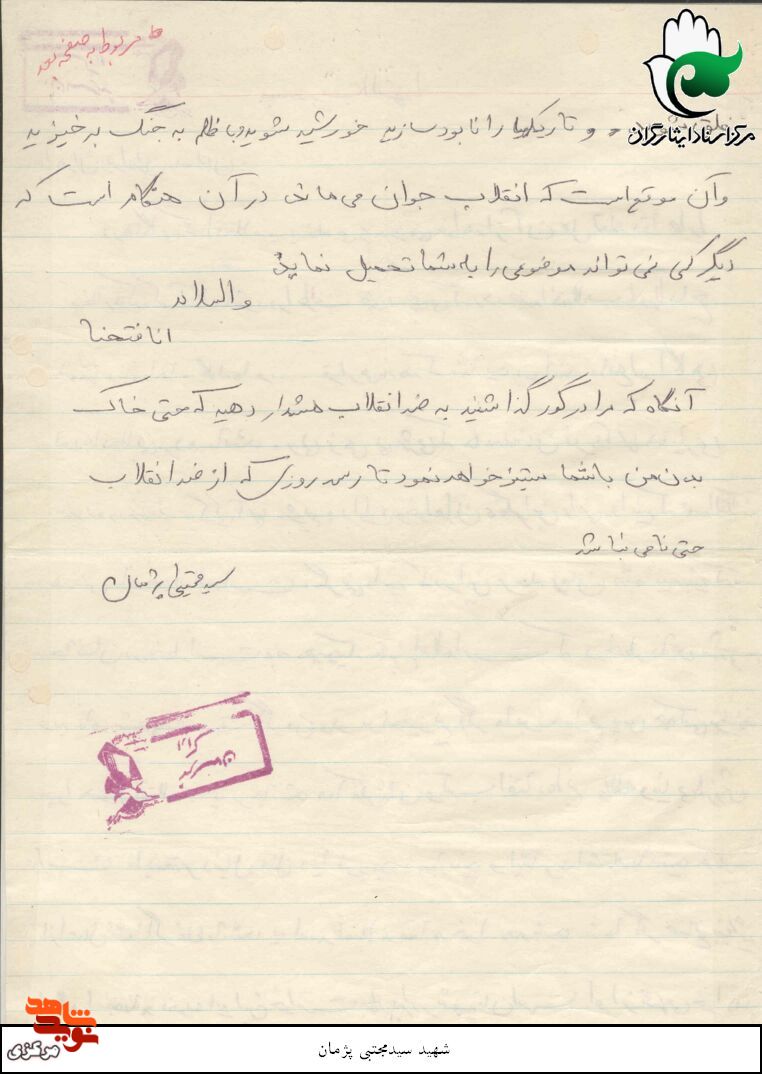 مربوط به صفحه بعد
مرکز اسناد ایثارگران
خلق و تاریکیها را نابود سازید خورشید شوید و با ظلم به جنگ برخیزید
و آن موقع است که انقلاب جوان می ماند در آن هنگام است که
دیگر کسی نمی تواند موضوعی را به شما تحمیل نماید
والسلام
انا فتحنا
آنگاه که مرا در گور گذاشتید به ضد انقلاب هشدار دهید که حتی خاک
بدن من با شما ستیز خواهد نمود تا رسد روزی که از ضد انقلاب
حتی نامی نباشد
سید مجتبی پژمان
نوید شاهد
مرکزی
شهید سیدمجتبی پژمان